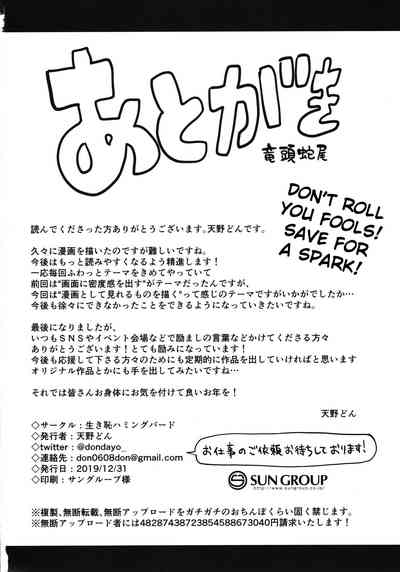 あとがき
竜頭蛇尾
DON'T ROLL
YOU FOOLS!
SAVE FOR
A SPARK!
読んでくださった方ありがとうございます。天野どんです。
久々に漫画を描いたのですが難しいですね。
今後はもっと読みやすくなるよう精進します!
一応毎回ふわっとテーマをきめてやっていて
前回は"画面に密度感を出す"がテーマだったんですが、
今回は"漫画として見れるものを描く"って感じのテーマですがいかがでしたか…
今後も徐々にできなかったことをできるようになっていきたいですね。
最後になりましたが、
いつもSNSやイベント会場などで励ましの言葉などかけてくださる方々
ありがとうございます!とても励みになっています!
今後も応援して下さる方々のためにも定期的に作品を出していければと思います
オリジナル作品とかにも手を出してみたいですね…
それでは皆さんお身体にお気を付けて良いお年を!
天野どん
◇サークル:生き恥ハミングバード
◇発行者:天野どん
◇twitter:@dondayo_
◇連絡先:don0608don@gmail.com
◇発行日:2019/12/31
◇印刷:サングループ様
お仕事のご依頼お待ちしております!
SUN GROUP
http://www.sungroup.co.jp/
※複製、無断転載、無断アップロードをガチガチのおちんぽくらい固く禁じます。
※無断アップロード者には48287438723854588673040円請求いたします!